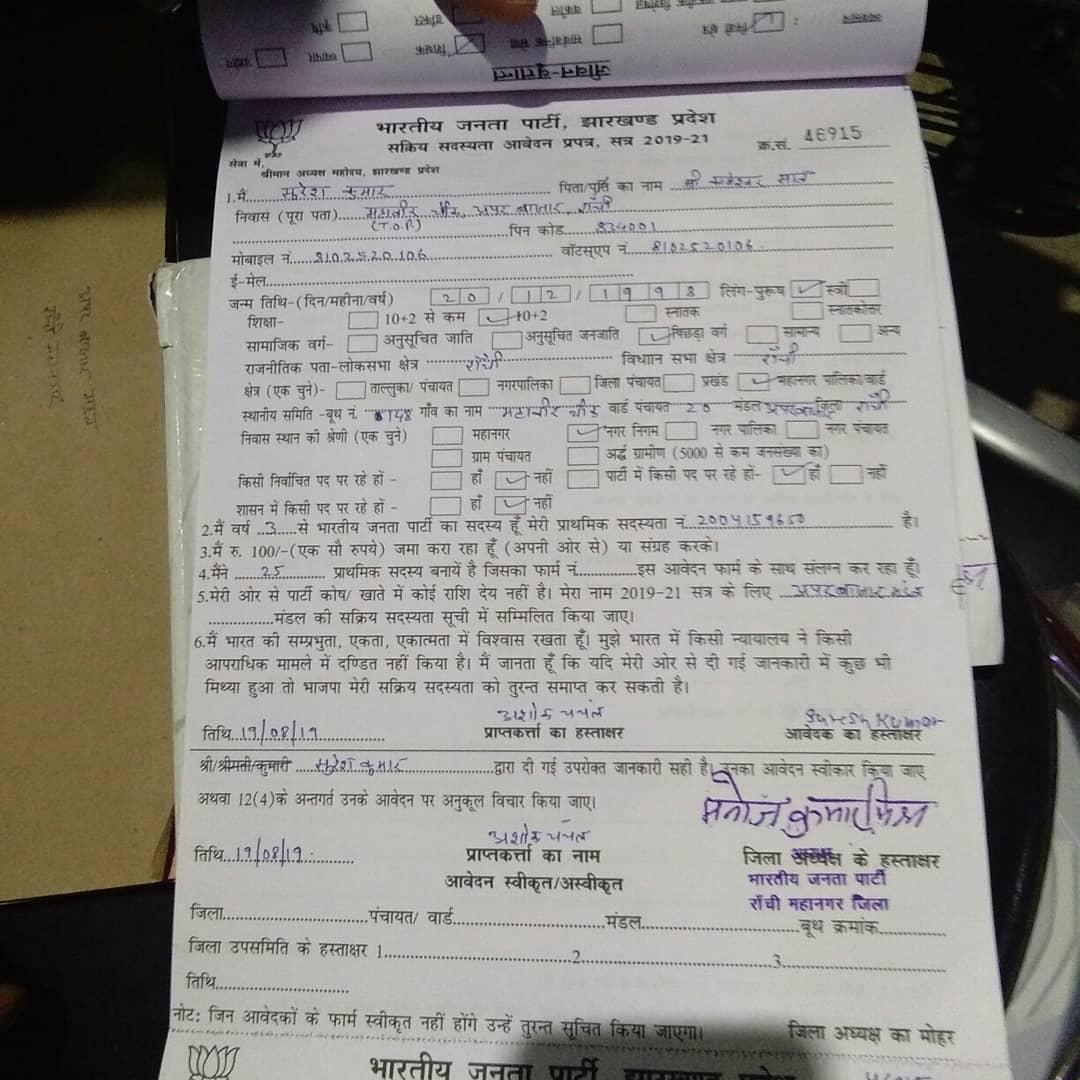 जीवन-वृत्तान्त
भारतीय जनता पार्टी, झारखण्ड प्रदेश
सक्रिय सदस्यता आवेदन प्रपत्र, सत्र 2019-21
क्र.सं. 46915
सेवा में,
श्रीमान अध्यक्ष महोदय, झारखण्ड प्रदेश
1.मैं सुरेश कुमार पिता/पुत्ति का नाम श्री
निवास (पूरा पता) महावीर चौक अपर बाजार, राँची
(T.O.P.) पिन कोड 834001
मोबाइल नं. 8102520106 वॉटसएप नं. 8102520106
ई-मेल
जन्म तिथि-(दिन/महीना/वर्ष) 20/12/1998 लिंग-पुरूष स्त्री
शिक्षा- 10+2 से कम 10+2 स्नातक स्नातकोत्तर
सामाजिक वर्ग- अनुसूचित जाति अनुसूचित जनजाति पिछड़ा वर्ग सामान्य अन्य
राजनीतिक पता-लोकसभा क्षेत्र राँची विधाान सभा क्षेत्र राँची
क्षेत्र (एक चुने)- ताल्लुका/ पंचायत नगरपालिका जिला पंचायत प्रखंड महानगर पालिका/वार्ड
स्थानीय समिति -बूथ नं. 148 गाँव का नाम महावीर चौक वार्ड पंचायत 20 मंडल अपर बाजार जिला राँची
निवास स्थान की श्रेणी (एक चुने) महानगर नगर निगम नगर पालिका नगर पंचायत
ग्राम पंचायत अर्द्ध ग्रामीण (5000 से कम जनसंख्या का)
किसी निर्वाचित पद पर रहे हों - हाँ नहीं पार्टी में किसी पद पर रहे हों- हाँ नहीं
शासन में किसी पद पर रहे हों - हाँ नहीं
2.मैं वर्ष 3 से भारतीय जनता पार्टी का सदस्य हूँ मेरी प्राथमिक सदस्यता नं. 2004159650 है।
3.मैं रु. 100/-(एक सौ रुपये) जमा करा रहा हूँ (अपनी ओर से) या संग्रह करके।
4.मैंने 25 प्राथमिक सदस्य बनायें है जिसका फार्म नं. इस आवेदन फार्म के साथ संलग्न कर रहा हूँ।
5.मेरी ओर से पार्टी कोष/ खाते में कोई राशि देय नहीं है। मेरा नाम 2019-21 सत्र के लिए अपर बाजार मंडल
मंडल की सक्रिय सदस्यता सूची में सम्मिलित किया जाए।
6.मैं भारत की सम्प्रभुता, एकता, एकात्मता में विश्वास रखता हूँ। मुझे भारत में किसी न्यायालय ने किसी
आपराधिक मामले में दण्डित नहीं किया है। मैं जानता हूँ कि यदि मेरी ओर से दी गई जानकारी में कुछ भी
मिथ्या हुआ तो भाजपा मेरी सक्रिय सदस्यता को तुरन्त समाप्त कर सकती है।
अशोक Suresh Kumar
तिथि 19/08/19 प्राप्तकर्त्ता का हस्ताक्षर आवेदक का हस्ताक्षर
श्री/श्रीमती/कुमारी सुरेश कुमार द्वारा दी गई उपरोक्त जानकारी सही है। उनका आवेदन स्वीकार किया जाए
अथवा 12(4)के अन्तर्गत उनके आवेदन पर अनुकूल विचार किया जाए।
मनोज कुमार मिश्र
अशोक
तिथि 19/08/19 प्राप्तकर्त्ता का नाम जिला अध्यक्ष के हस्ताक्षर
आवेदन स्वीकृत/अस्वीकृत भारतीय जनता पार्टी
राँची महानगर जिला
जिला पंचायत/ वार्ड मंडल बूथ क्रमांक
जिला उपसमिति के हस्ताक्षर 1 2 3
तिथि
नोट: जिन आवेदकों के फार्म स्वीकृत नहीं होंगे उन्हें तुरन्त सूचित किया जाएगा। जिला अध्यक्ष का मोहर
भारतीय जनता पार्टी, झारखण्ड प्रदेश